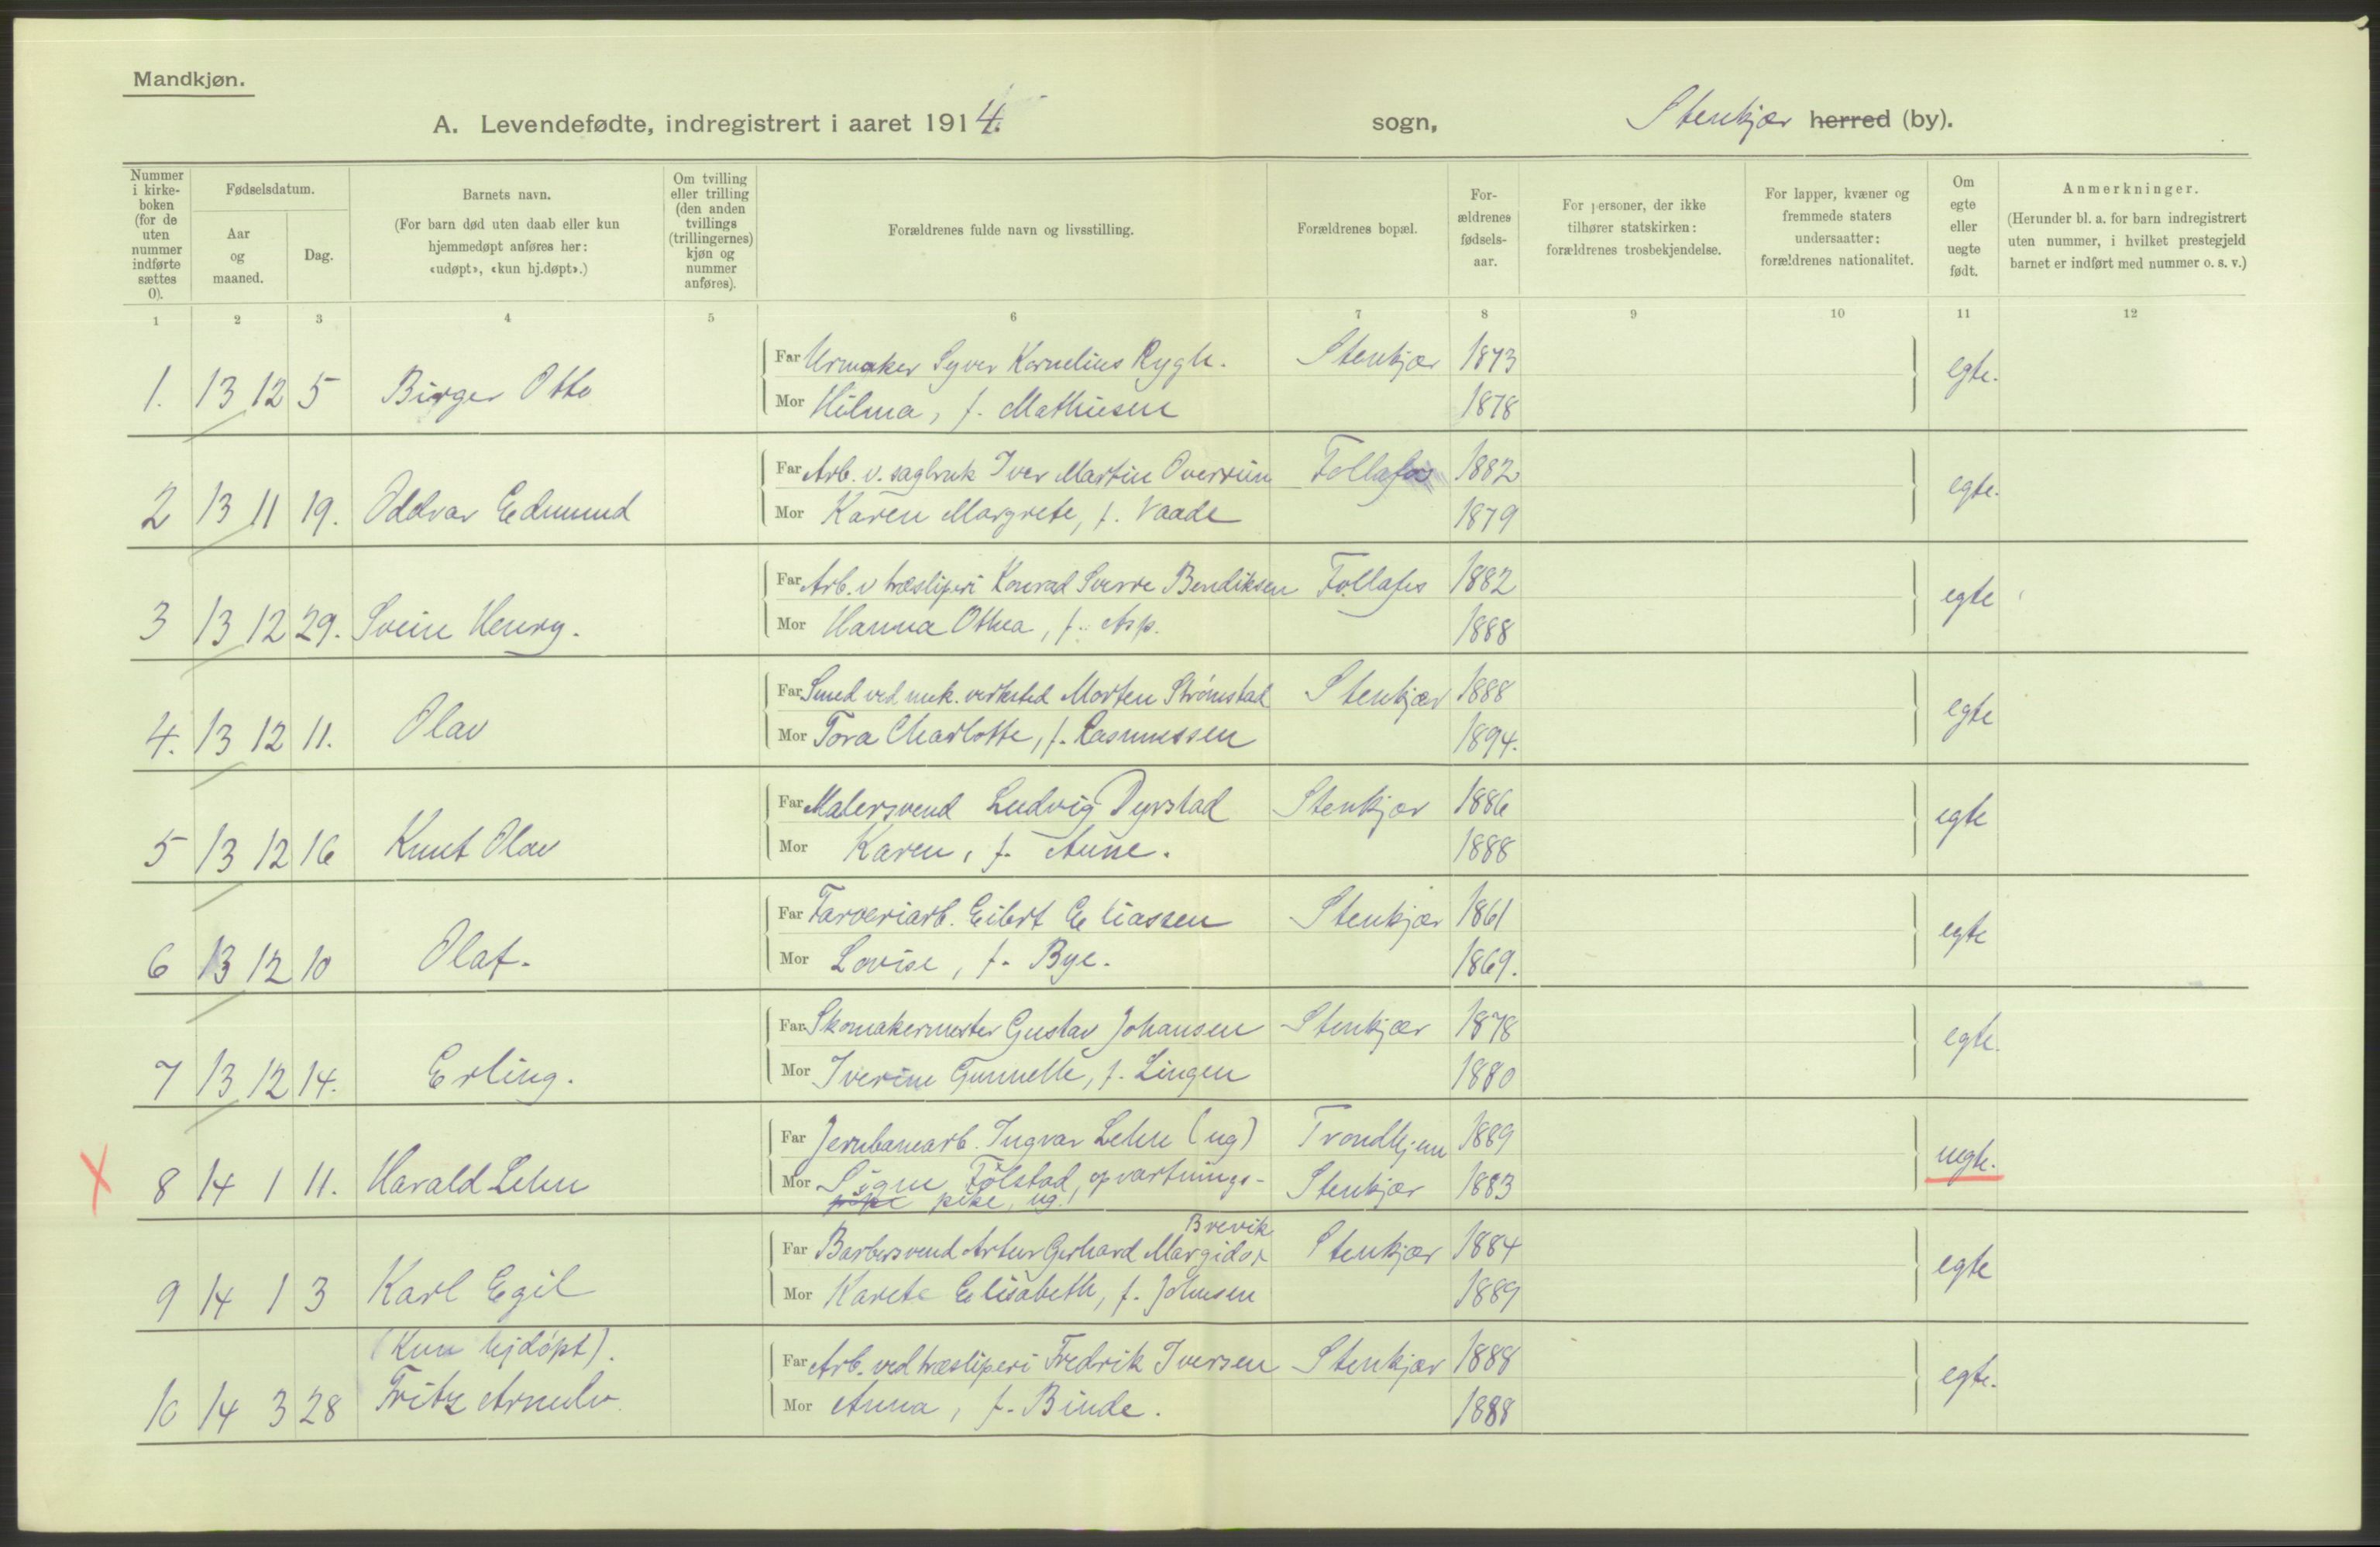 Mandkjøn.
A. Levendefødte, indregistrert i aaret 1914. sogn, Stenkjær herred (by).
Nummer i kirke-boken (for de uten nummer indførte sættes 0).
Fødselsdatum.
Aar og maaned.
Dag.
Barnets navn.
(For barn død uten daab eller kun hjemmedøpt anføres her: «udøpt», «kun hj.døpt».)
Om tvilling eller trilling (den anden tvillings (trillingernes) kjøn og nummer anføres).
Forældrenes fulde navn og livsstilling.
Forældrenes bopæl.
For-ældrenes fødsels-aar.
For personer, der ikke tilhører statskirken: forældrenes trosbekjendelse.
For lapper, kvæner og fremmede staters undersaatter: forældrenes nationalitet.
Om egte eller uegte født.
Anmerkninger.
(Herunder bl. a. for barn indregistrert uten nummer, i hvilket prestegjeld barnet er indført med nummer o. s. v.)
1 2 3 4 5 6 7 8 9 10 11 12
Far Urmaker Syver Kornelius Rygh. Stenkjær 1873
1. 13 12 5 Birger Otto egte.
Mor Hilma, f. Mathiesen 1878
Far Arb. v. sagbruk Iver Martin Overrein Follafos 1882
2 13 11 19. Oddvar Edmund egte.
Mor Karen Margrete, f. Vaade 1879
Far Arb. v træsliperi Konrad Sverre Bendiksen Follafos 1882
3 13 12 29. Svein Henry. egte
Mor Hanna Othea, f. Asp. 1888
Far Smed ved mek. verksted Morten Strømstad Stenkjær 1888
4. 13 12 11. Olav egte
Mor Tora Charlotte, f. Rasmussen 1894.
Far Malersvend Ludvig Dyrstad Stenkjær 1886
5 13 12 16 Knut Olav egte
Mor Karen, f. Aune. 1888
Far Farveriarb. Eilert Eliassen Stenkjær 1861
6 13 12 10 Olaf. egte
Mor Lovise, f. Bye. 1869.
Far Skomakermester Gustav Johansen Stenkjær 1878
7 13 12 14. Erling. egte.
Mor Iverine Gunnelle, f. Lingen 1880
Far Jernbanearb. Ingvar Lehn (ug) Trondhjem 1889
X 8 14 1 11. Harald Lehn uegte.
Mor Signe Følstad, opvartnings- Stenkjær 1883
pike, ug.
Brevik
Far Barbersvend Artur Gerhard Margido Stenkjær 1884
9 14 1 3 Karl Egil egte
Mor Karete Elisabeth, f. Johnsen 1889
(Kun hjdøpt).
Far Arb. ved træsliperi Fredrik Iversen Stenkjær 1888
10 14 3 28 Fritz Arnulv. egte.
Mor Anna, f. Binde. 1888